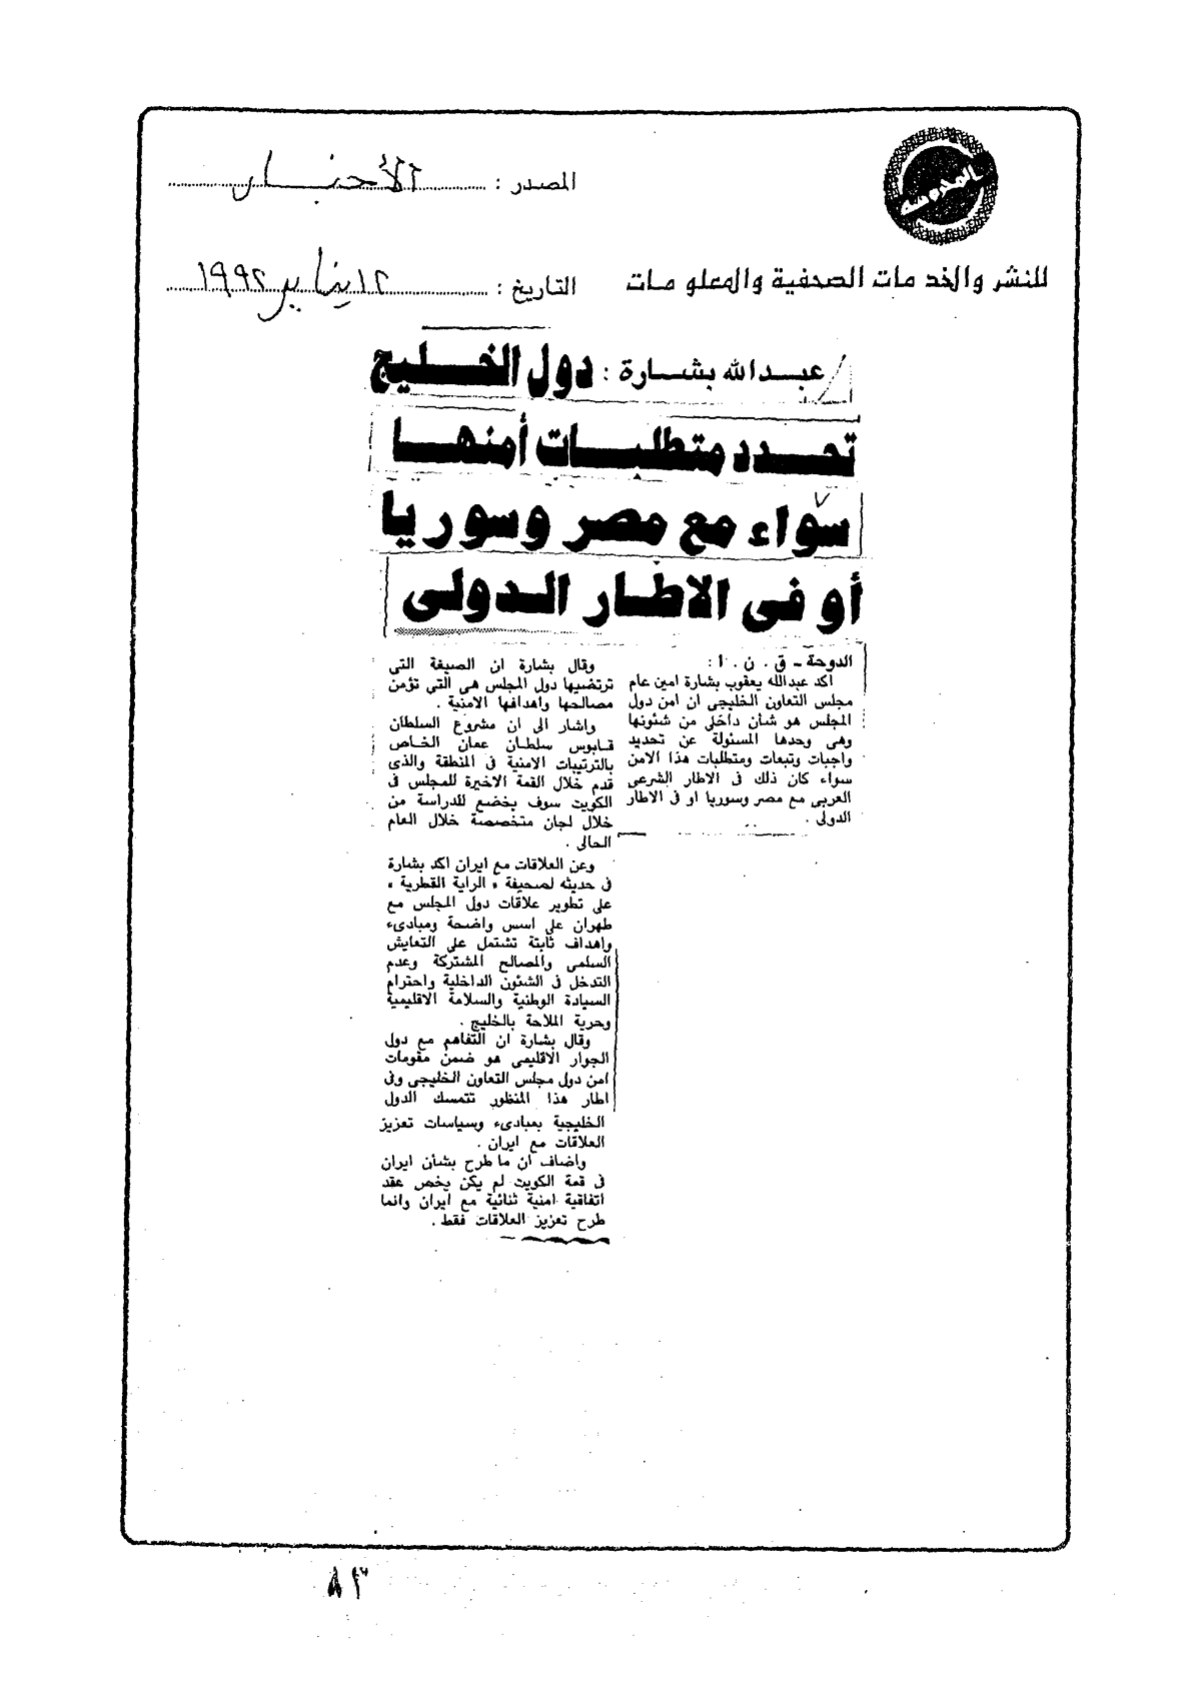 المصدر : الأخبار
للنشر والخدمات الصحفية والمعلومات
التاريخ : ١٢ يناير ١٩٩٢
عبدالله بشارة : دول الخليج
تحدد متطلبات أمنها
سواء مع مصر وسوريا
أو فى الاطار الدولى
الدوحة - ق . ن . ا :
اكد عبدالله يعقوب بشارة امين عام
مجلس التعاون الخليجى ان امن دول
المجلس هو شأن داخلى من شئونها
وهى وحدها المسئولة عن تحديد
واجبات وتبعات ومتطلبات هذا الامن
سواء كان ذلك فى الاطار الشرعى
العربى مع مصر وسوريا او فى الاطار
الدولى .
وقال بشارة ان الصيغة التى
ترتضيها دول المجلس هى التى تؤمن
مصالحها واهدافها الامنية .
واشار الى ان مشروع السلطان
قابوس سلطان عمان الخاص
بالترتيبات الامنية فى المنطقة والذى
قدم خلال القمة الاخيرة للمجلس فى
الكويت سوف يخضع للدراسة من
خلال لجان متخصصة خلال العام
الحالى .
وعن العلاقات مع ايران اكد بشارة
فى حديثه لصحيفة « الراية القطرية »
على تطوير علاقات دول المجلس مع
طهران على اسس واضحة ومبادىء
واهداف ثابتة تشتمل على التعايش
السلمى والمصالح المشتركة وعدم
التدخل فى الشئون الداخلية واحترام
السيادة الوطنية والسلامة الاقليمية
وحرية الملاحة بالخليج .
وقال بشارة ان التفاهم مع دول
الجوار الاقليمى هو ضمن مقومات
امن دول مجلس التعاون الخليجى وفى
اطار هذا المنظور تتمسك الدول
الخليجية بمبادىء وسياسات تعزيز
العلاقات مع ايران .
واضاف ان ما طرح بشأن ايران
فى قمة الكويت لم يكن يخص عقد
اتفاقية امنية ثنائية مع ايران وانما
طرح تعزيز العلاقات فقط .
٨٣